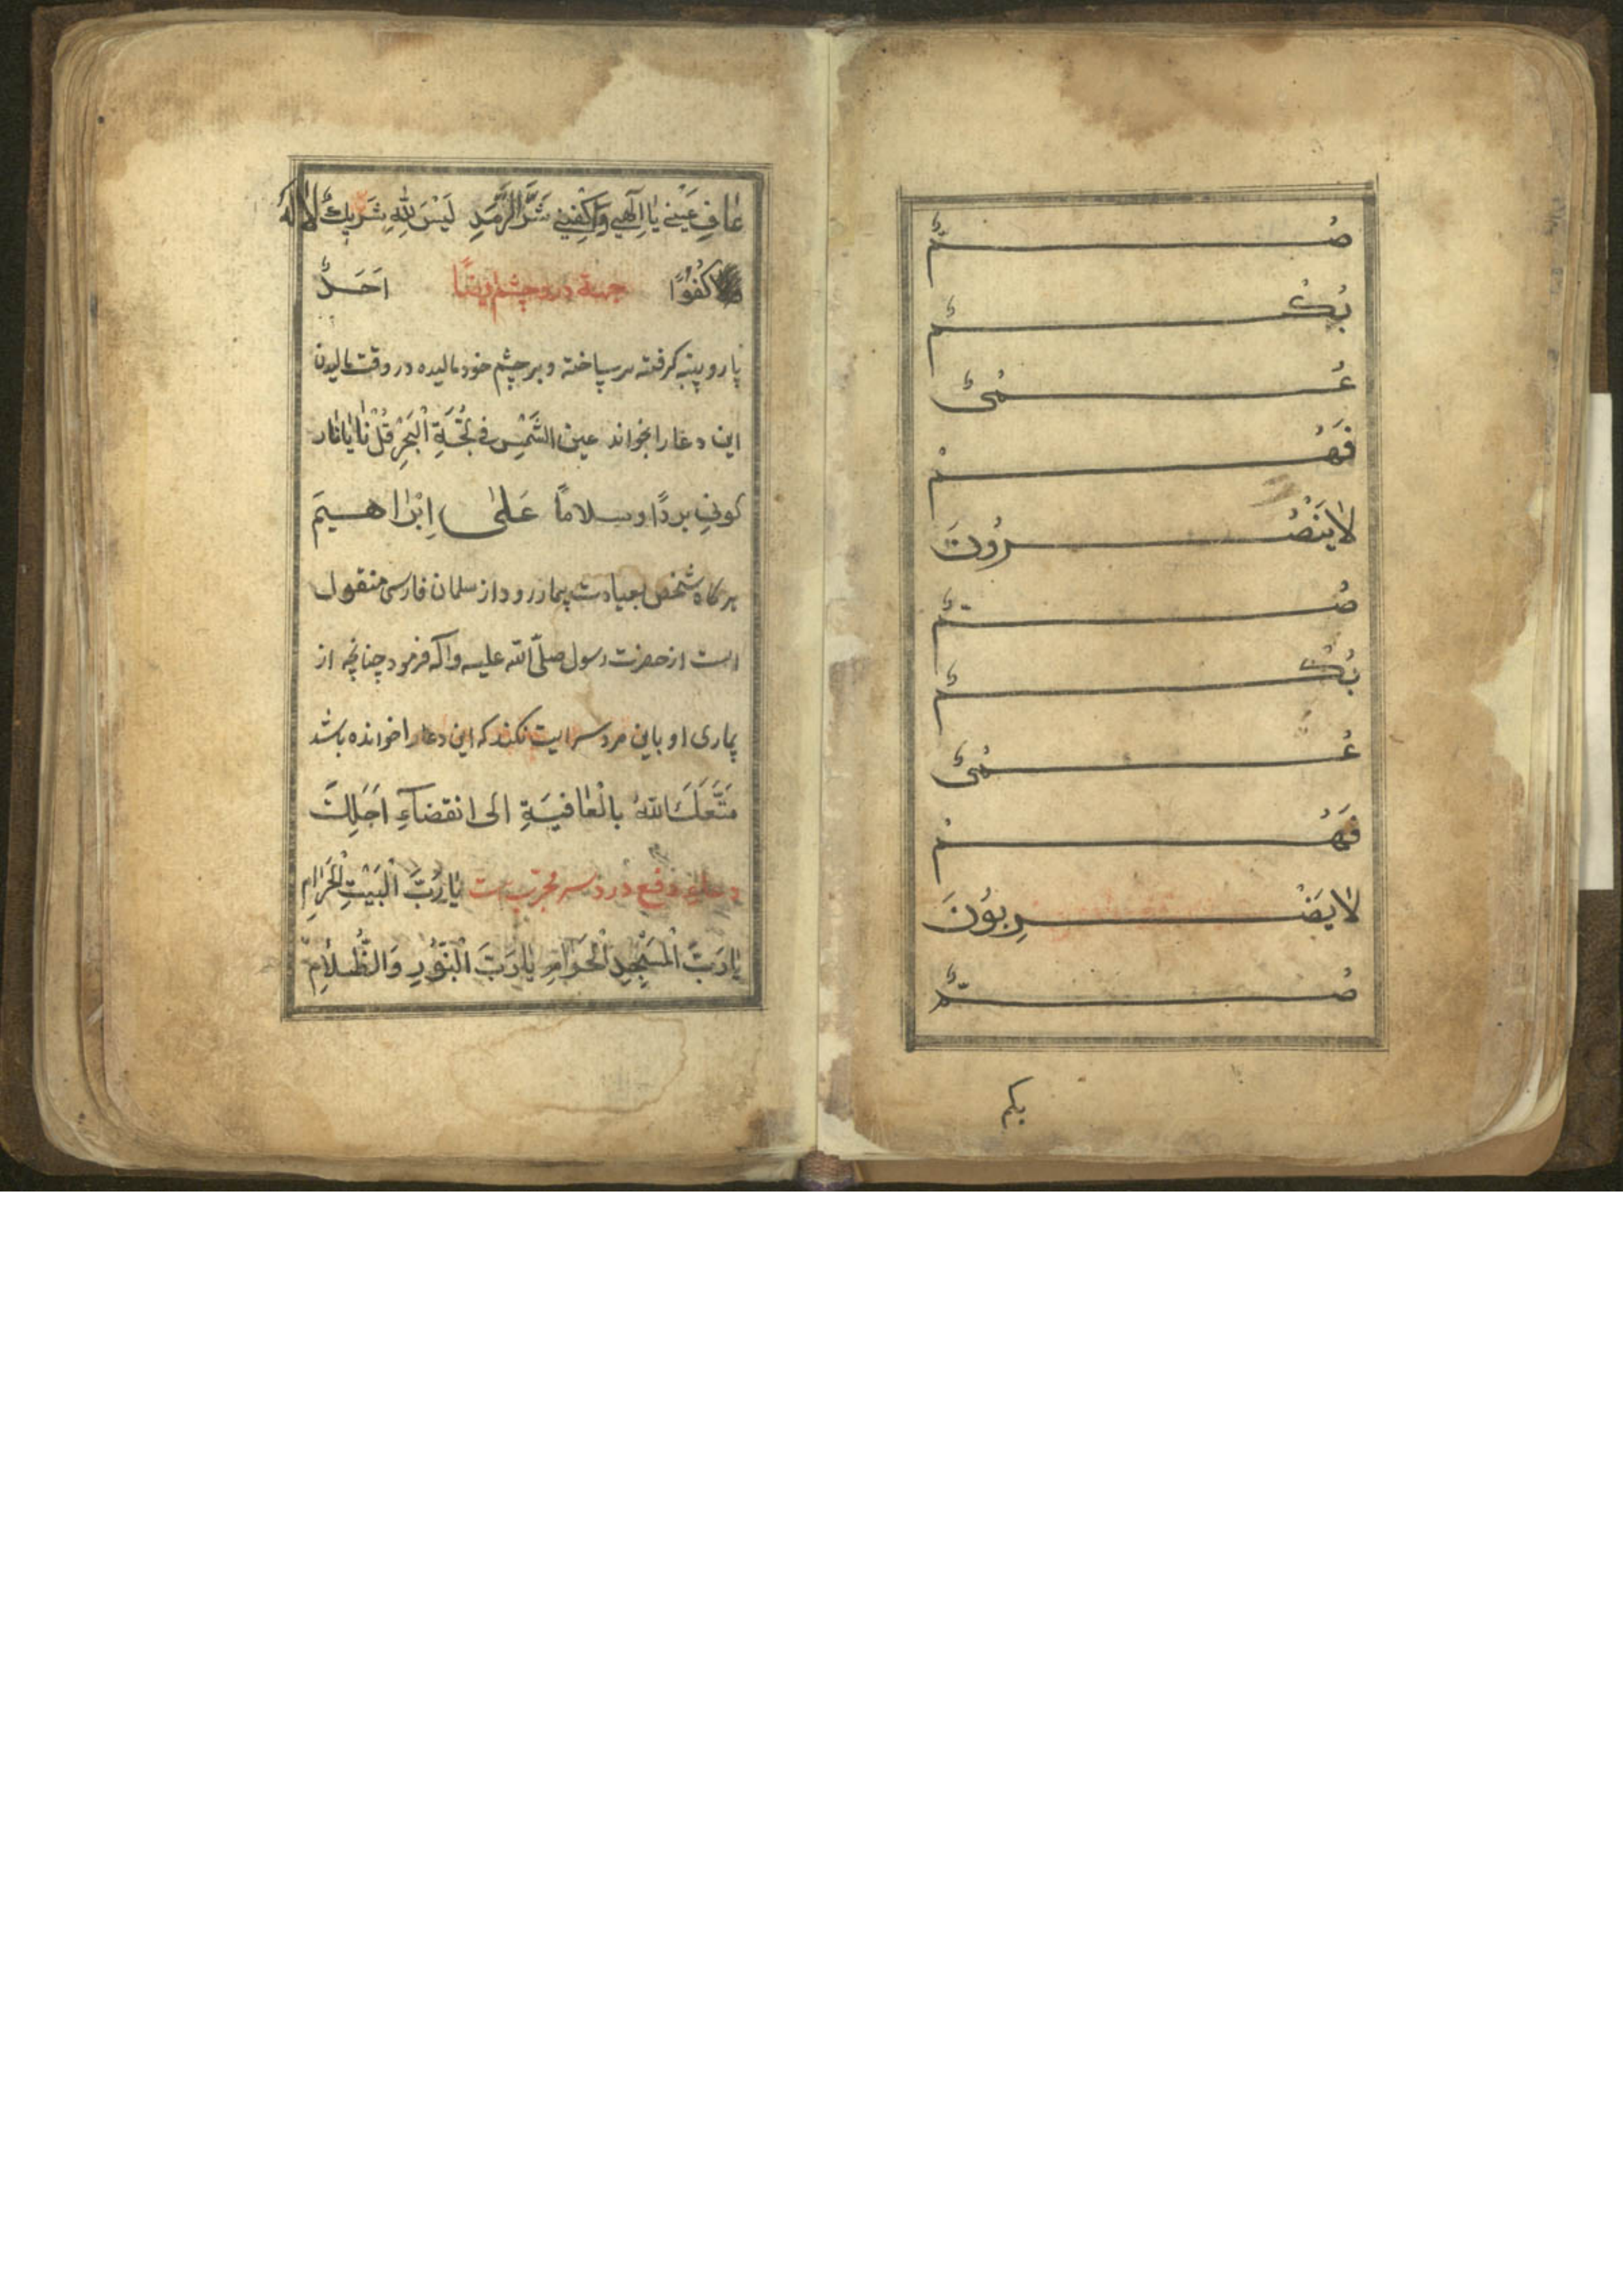 صُمٌّ
بُكْمٌ
عُمْىٌ
فَهُمْ
لَا يَنْصُرُونَ
صُمٌّ
بُكْمٌ
عُمْىٌ
فَهُمْ
لَا يَضْرِبُونَ
صُمٌّ
بكم
عٰافِ عَيْنى يٰا اِلٰهى وَاكْفِنى شَرَّ الرَّمَدِ لَيْسَ لِلّٰهِ شَريكٌ لَا لَهُ
كُفُوًا جهة درد چشم ايضًا اَحَدٌ
پاره پنبه كرفته بر سياخته و بر چشم خود ماليده در وقت ماليدن
اين دعا را بخواند عين الشَّمْسِ فى لُجَّةِ الْبَحْرِ قُلْنٰا يٰا نٰار
كونى بردًا و سلامًا عَلٰى اِبْرٰاهيمَ
هر كاه شخص بعيادت بيمار رود از سلمان فارسى منقول
است از حضرت رسول صلّى الله عليه و اكه فرمود چنانچه از
بيمارى او باين مرد سرايت نكند كه اين دعا را خوانده باشد
مَتَّعَكَ اللّٰهُ بِالْعٰافِيَةِ اِلى انقضآءِ اَجَلِكَ
دعاى دفع درد سر مجرّب ست يٰا رَبَّ الْبَيْتِ الْحَرٰامِ
يٰا رَبَّ الْمَسْجِدِ الْحَرٰامِ يٰا رَبَّ النُّورِ وَالظُّلٰامِ